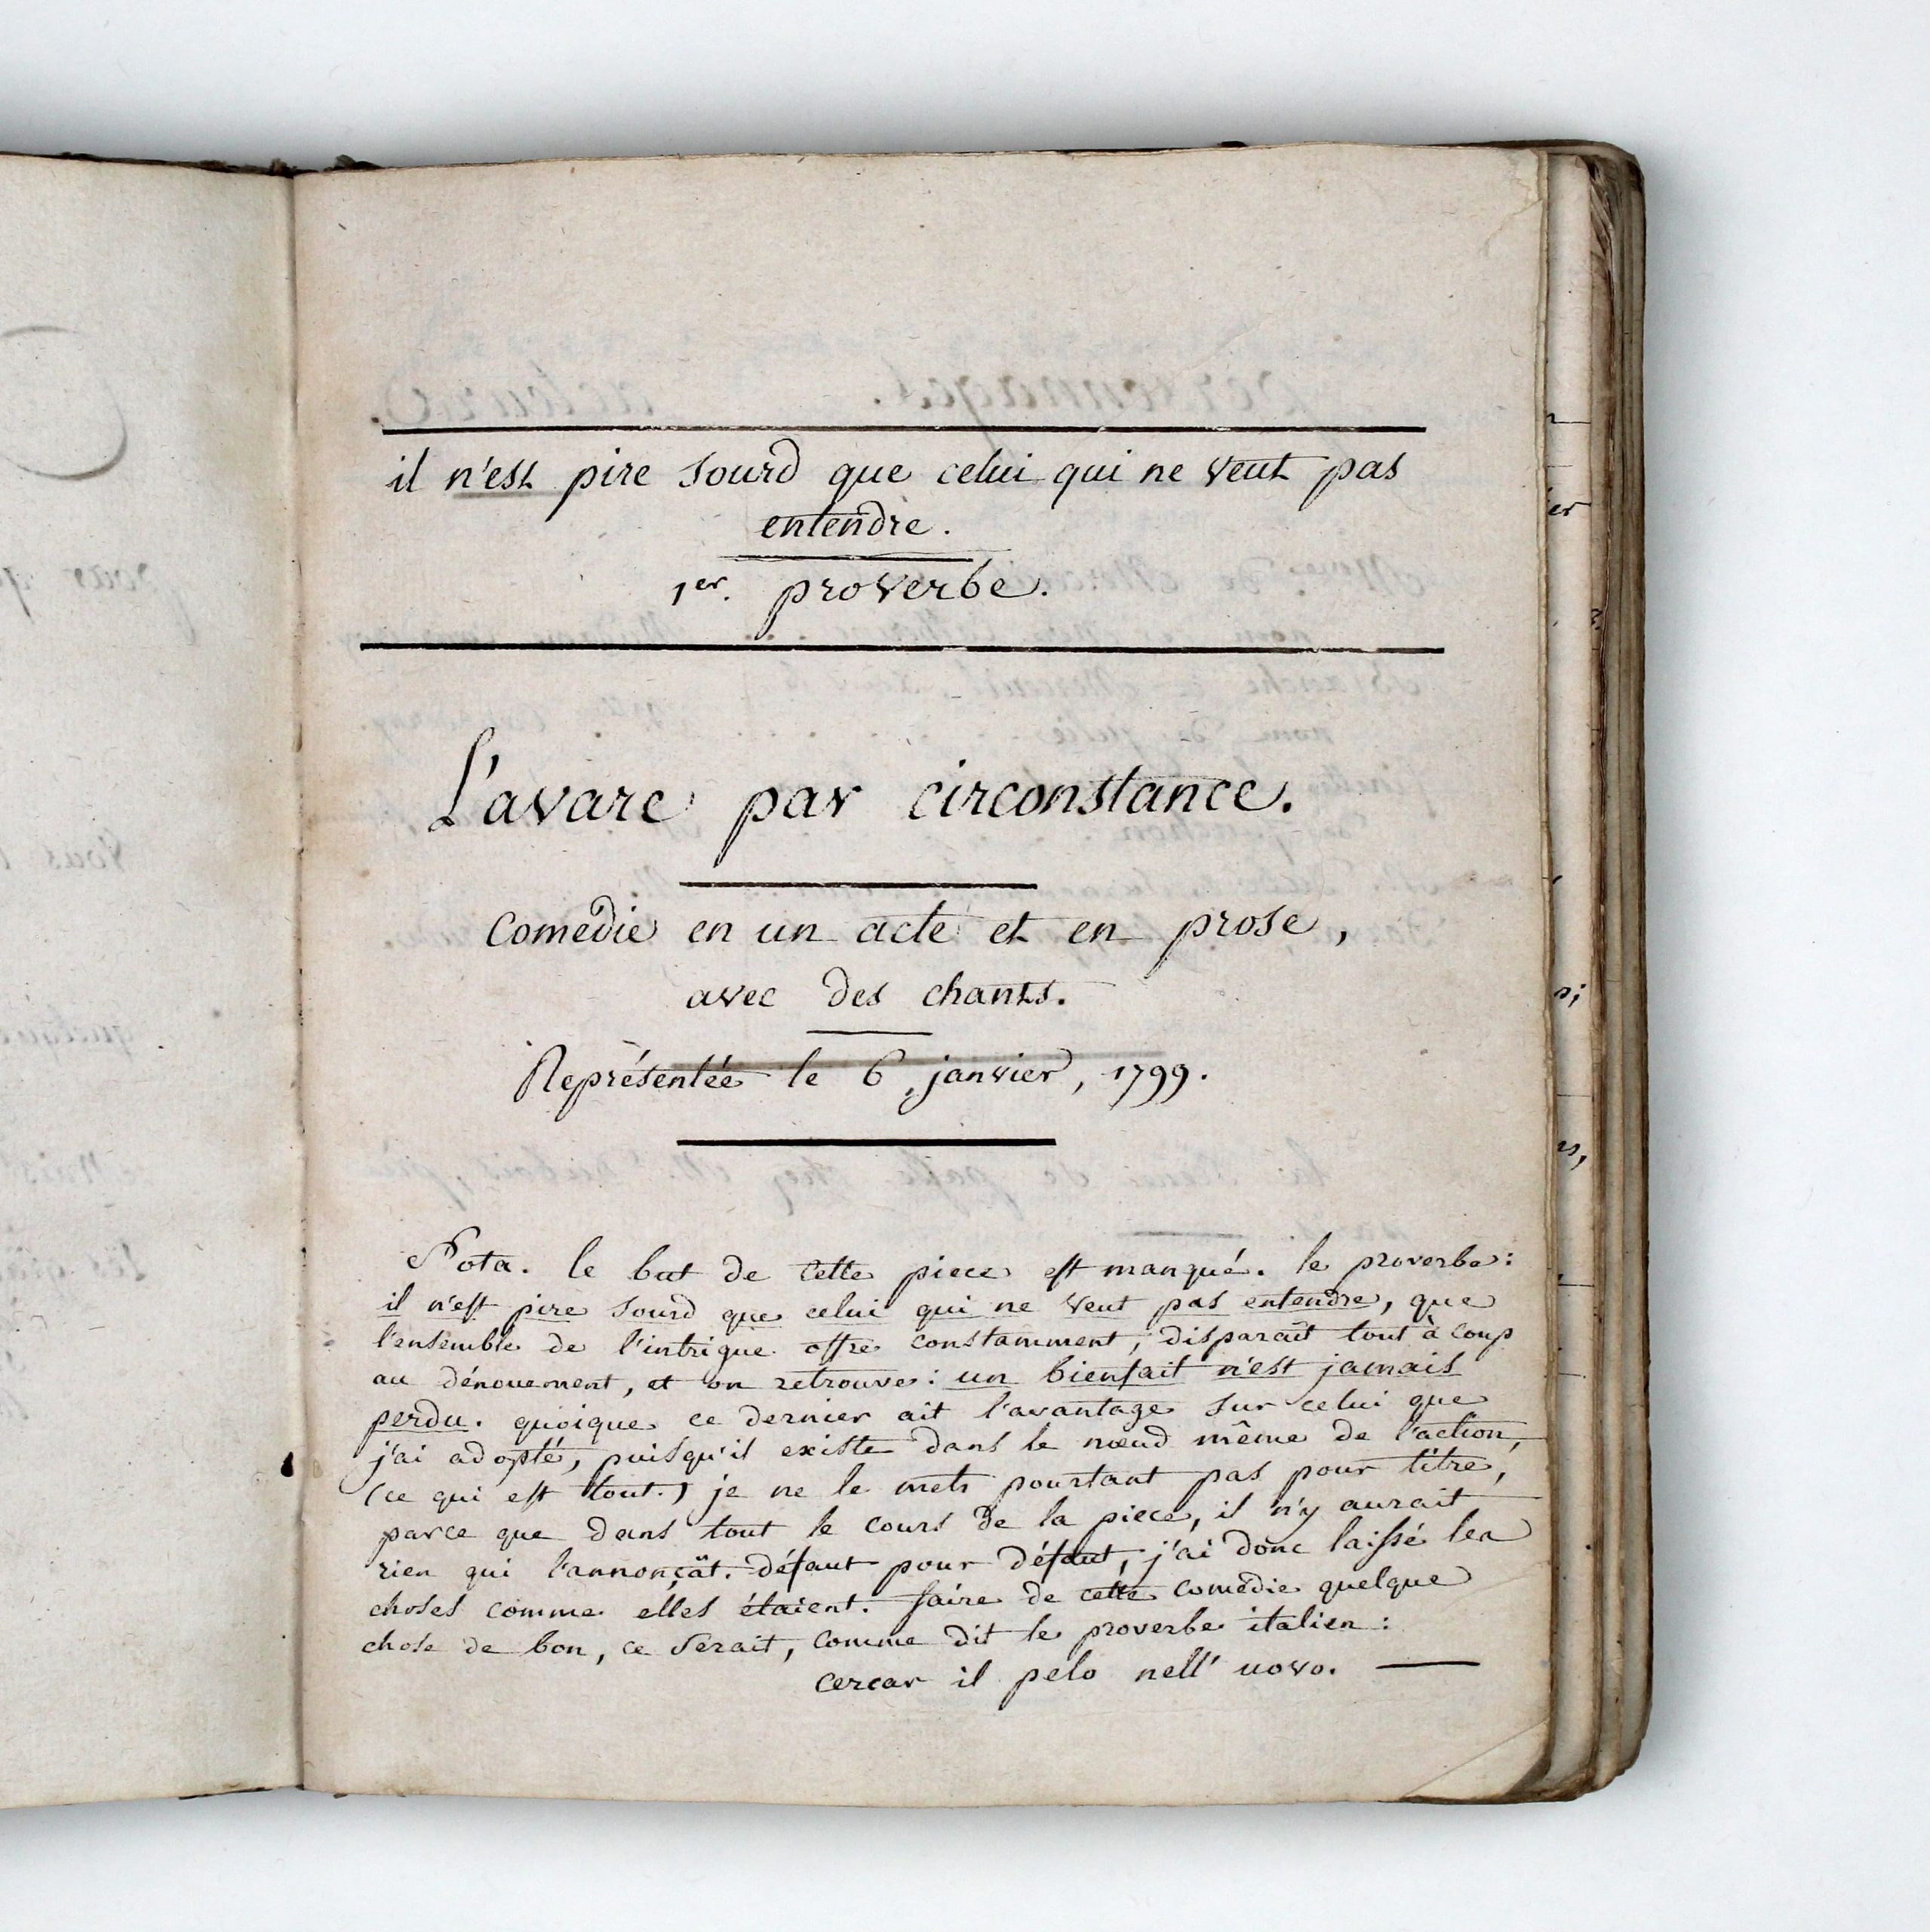 il n'est pire sourd que celui qui ne veut pas
entendre.
1er. proverbe.
L'avare par circonstance.
Comédie en un acte et en prose,
avec des chants.
Représentée le 6 janvier, 1799.
Nota. le but de cette piece est manqué. le proverbe:
il n'est pire sourd que celui qui ne veut pas entendre, que
l'ensemble de l'intrigue offre constamment, disparaît tout à coup
au dénouement, et on retrouve: un bienfait n'est jamais
perdu. quoique ce dernier ait l'avantage sur celui que
j'ai adopté, puisqu'il existe dans le nœud même de l'action,
(ce qui est tout.) je ne le mets pourtant pas pour titre,
parce que dans tout le cours de la piece, il n'y aurait
rien qui l'annonçât. défaut pour défaut, j'ai donc laissé les
choses comme elles étaient. faire de cette comédie quelque
chose de bon, ce serait, comme dit le proverbe italien:
cercar il pelo nell' uovo.